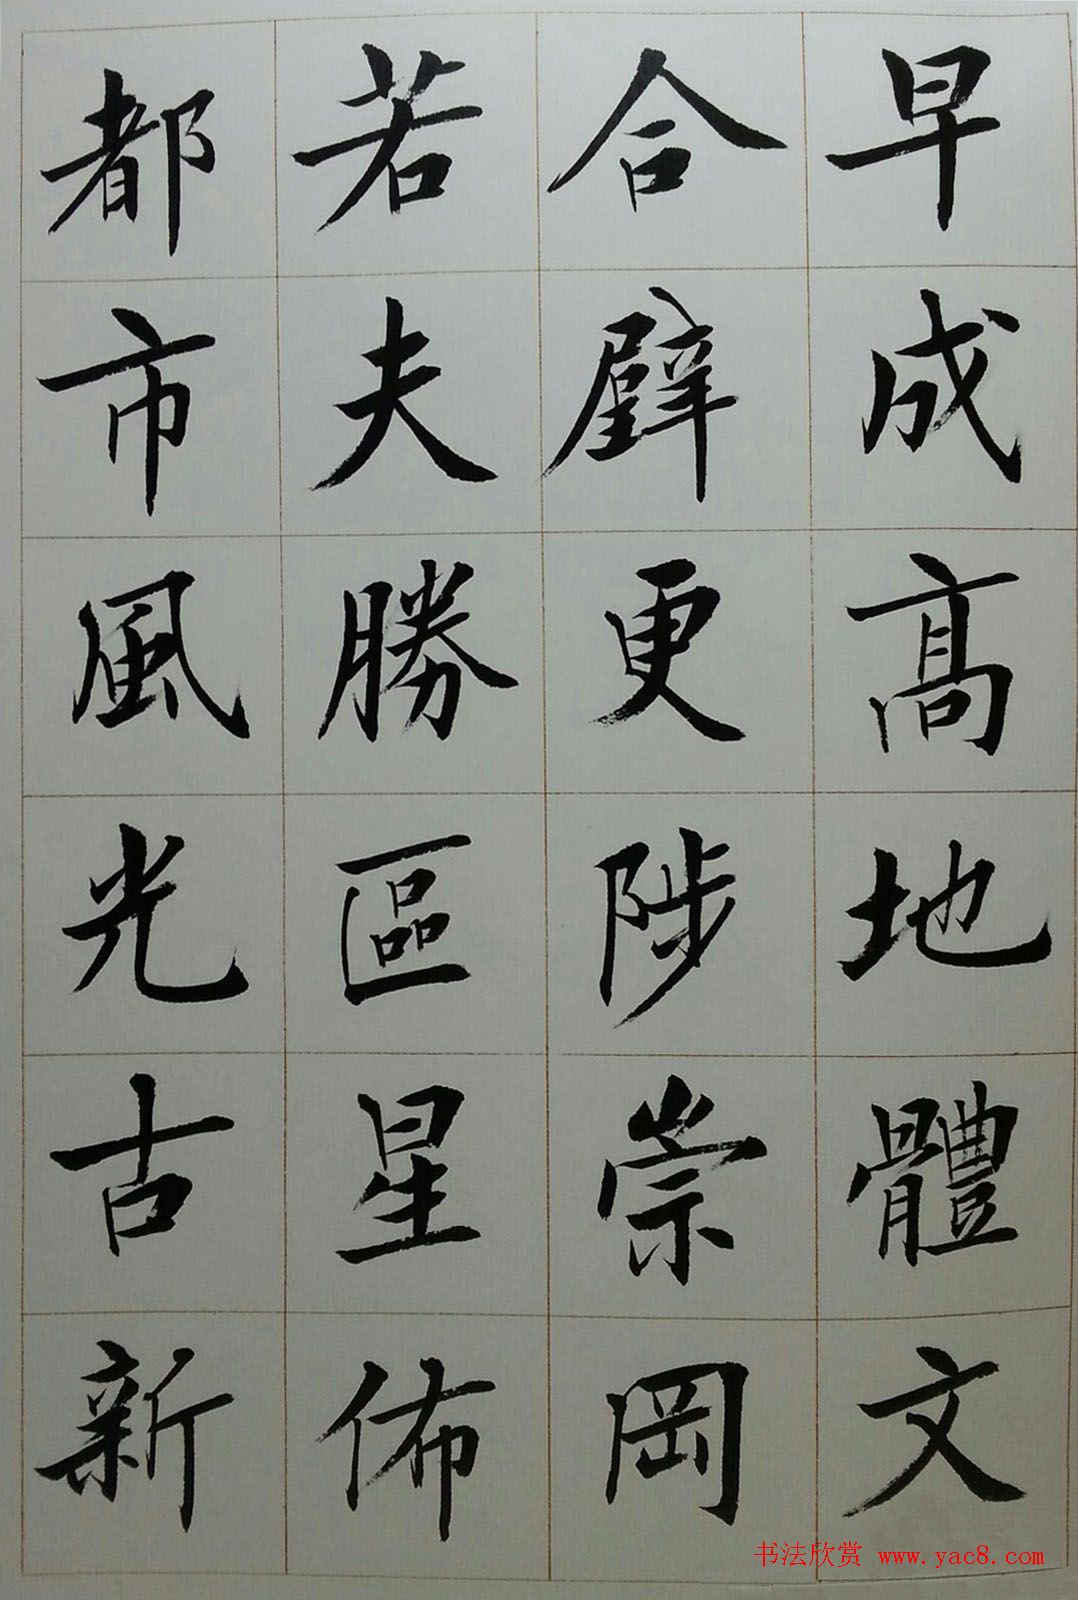 早成高地體文
合璧更陟崇岡
若夫勝區星佈
都市風光古新
书法欣赏 www.yac8.com